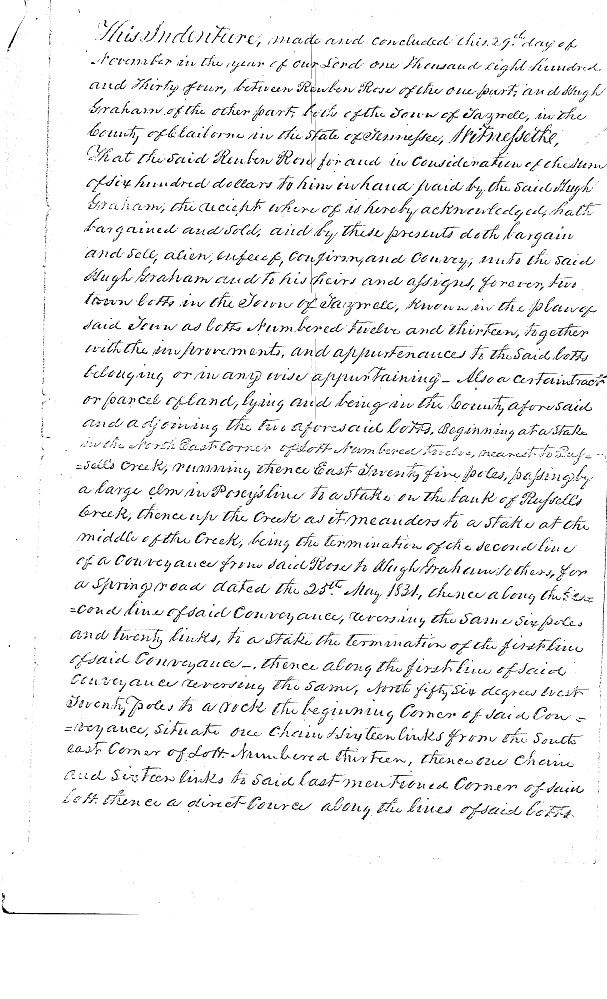 This Indenture, made and concluded this 29th day of
November in the year of our Lord one Thousand eight hundred
and Thirty four, between Reuben Rose of the one part, and Hugh
Graham of the other part, both of the Town of Tazwell, in the
County of Claiborne in the State of Tennessee, Witnesseth,
That the said Reuben Rose for and in consideration of the sum
of six hundred dollars to him in hand paid by the said Hugh
Graham, the reciept where of is hereby acknowledged, hath
bargained and sold, and by these presents doth bargain
and sell, alien, enfeeof, confirm, and convey, unto the said
Hugh Graham and to his heirs and assigns, forever, two
town Lotts in the Town of Tazwell, known in the plan of
said Town as Lotts Numbered twelve and thirteen, together
with the improvements, and appurtenances to the said Lotts
belonging or in any wise appurtaining – Also a certain tract
or parcel of land, lying and being in the County aforesaid
and adjoining the two aforesaid Lotts, Beginning at a Stake
in the North East Corner of Lott Numbered twelve, nearest to Rus=
=sells Creek, running thence East Twenty five poles, passing by
a large elm in Posey's line to a Stake on the bank of Russells
Creek, thence up the Creek as it meanders to a Stake at the
middle of the Creek, being the termination of the second line
of a Conveyance from said Rose to Hugh Graham & others, for
a Spring road dated the 25th May 1831, thence along the Se=
=cond line of said Conveyance, reversing the same Six poles
and twenty links, to a Stake the termination of the first line
of said Conveyance –, thence along the first line of said
Conveyance reversing the same, North fifty Six degrees West
Twenty poles to a rock the beginning Corner of said Con=
=veyance, Situate one Chain & Sixteen links from the South
east Corner of Lott Numbered thirteen, thence one Chain
and Sixteen links to said last mentioned Corner of said
Lott. thence a direct Cource along the lines of said Lotts